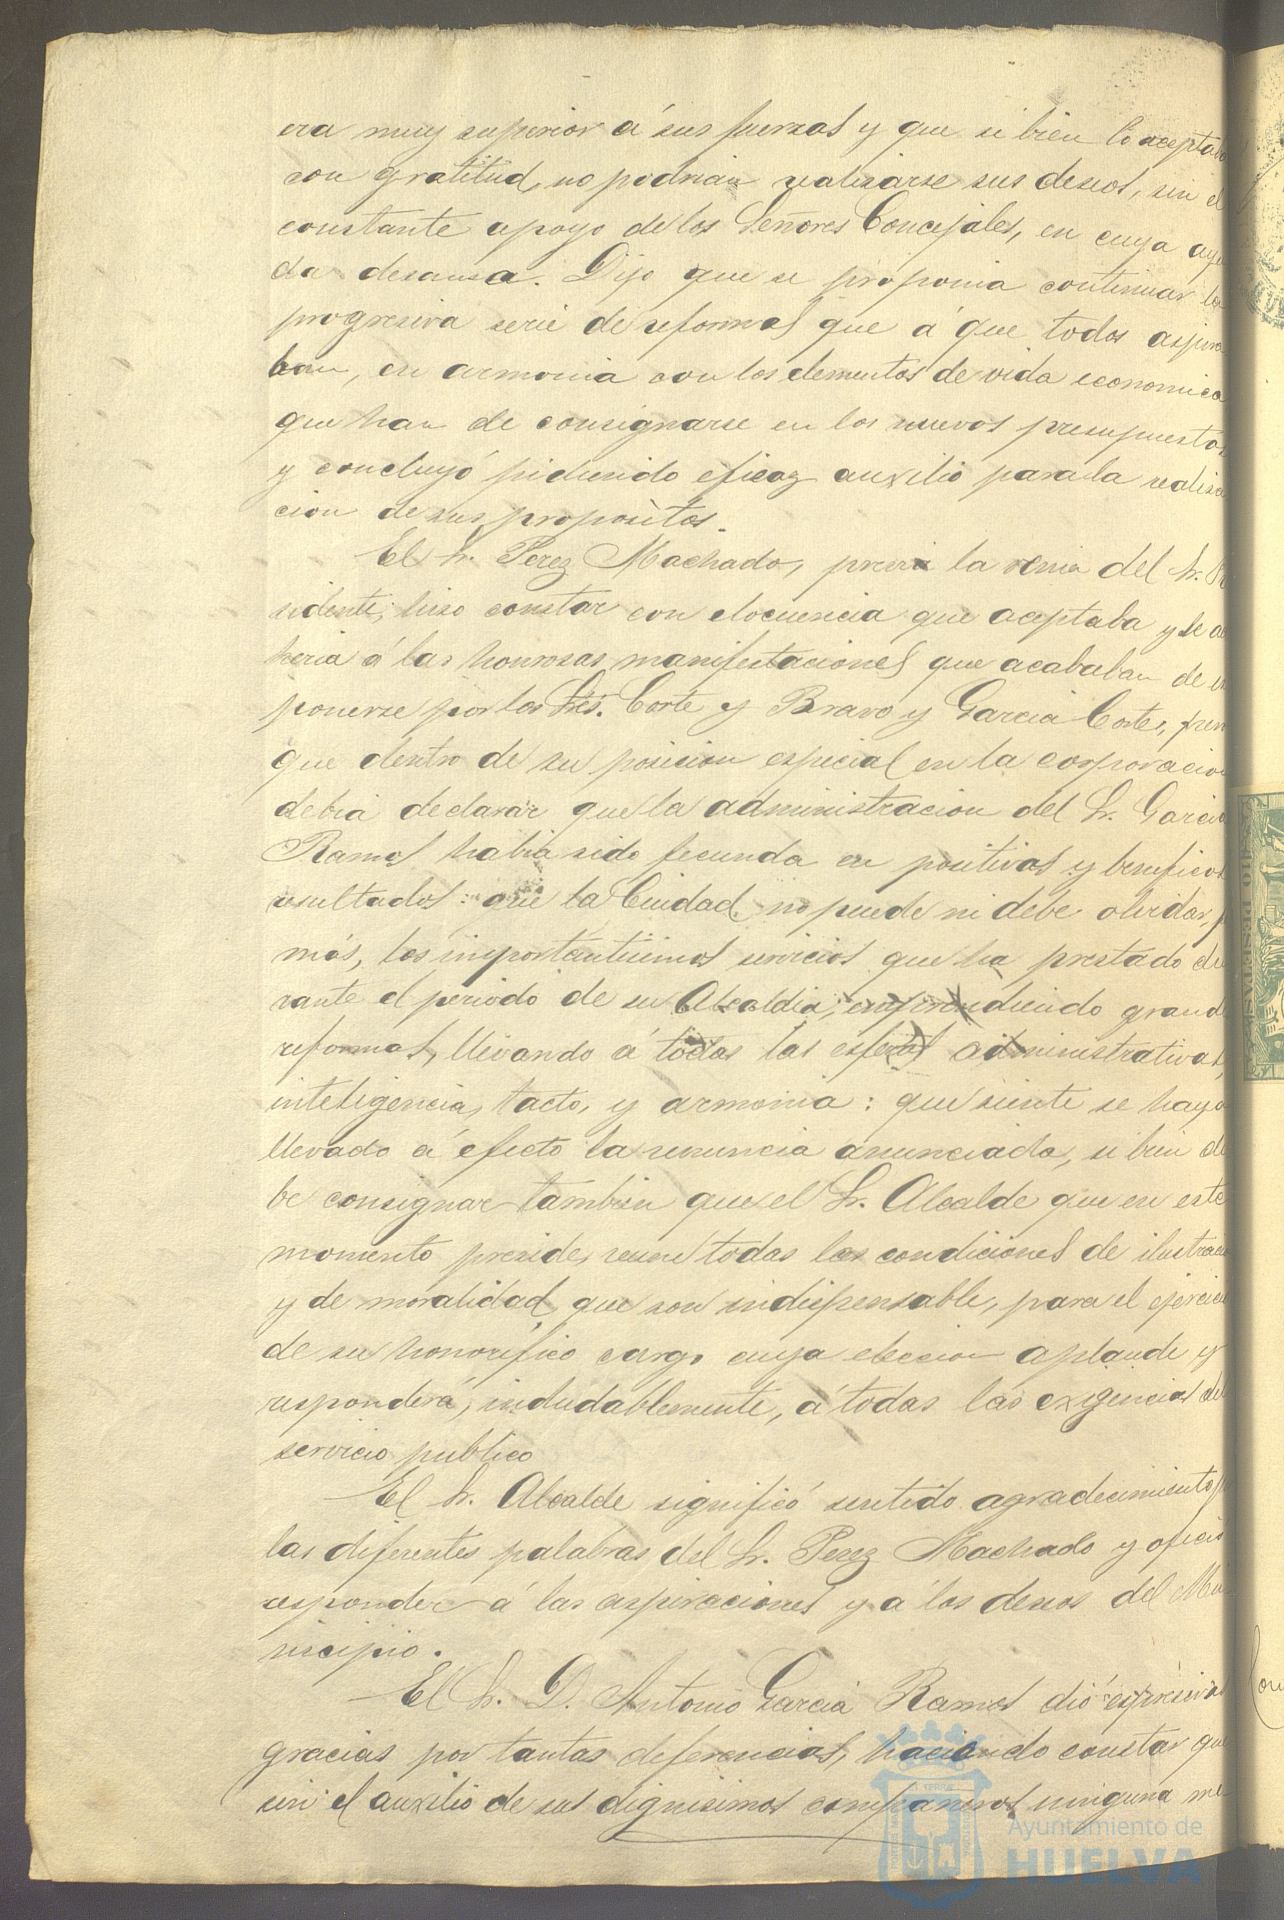 era muy superior á sus fuerzas y que si bien lo acepta
con gratitud, no podrian realizarse sus deseos, sin el
constante apoyo de los Señores Concejales, en cuya ayu
da descansa. Dijo que se proponia continuar la
progresiva serie de reformas que á que todos aspira
ban, en armonia con los elementos de vida economica
que han de consignarse en los nuevos presupuestos
y concluyó pidiendo eficaz auxilio para la realiza
cion de sus propositos.
El Sr. Perez Machado, previa la venia del Sr. Pre
sidente, hizo constar con elocuencia que aceptaba y se ad
heria á las honrosas manifestaciones que acababan de ex
ponerse por los Sres. Corte y Bravo y Garcia Cortes,
que dentro de su posicion especial en la corporacion
debia declarar que la administracion del Sr. Garcia
Ramos habia sido fecunda en positivos y beneficos
resultados: que la Ciudad no puede ni debe olvidar, ja
más, los importantisimos servicios que ha prestado du
rante el periodo de su Alcaldia, emprendiendo grandes
reformas, llevando á todas las esferas administrativas,
inteligencia, tacto, y armonia: que siente se haya
llevado á efecto la renuncia anunciada, si bien de
be consignar tambien que el Sr. Alcalde que en este
momento preside, reune todas las condiciones de ilustracion
y de moralidad que son indispensable, para el ejercicio
de su honorifico cargo cuya eleccion aplaude y
responderá, indudablemente, á todas las exigencias del
servicio publico
El Sr. Alcalde significó sentido agradecimiento por
las diferentes palabras del Sr. Perez Machado y ofreció
responder á las aspiraciones y á los deseos del Mu
nicipio.
El Sr. D. Antonio Garcia Ramos dió expresivas
gracias por tantas deferencias, haciendo constar que
sin el auxilio de sus dignisimos compañeros, ninguna me
Ayuntamiento de
HUELVA